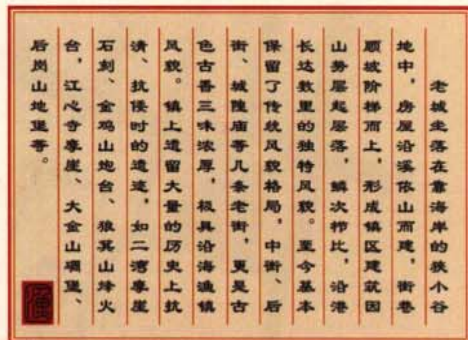 老城坐落在靠海岸的狭小谷
地中，房屋沿溪依山而建，街巷
顺坡阶梯而上，形成镇区建筑因
山势层起层落，鳞次栉比，沿港
长达数里的独特风貌。至今基本
保留了传统风貌格局，中街、后
街、城隍庙等几条老街，更是古
色古香三味浓厚，极具沿海渔镇
风貌。镇上遗留大量的历史上抗
清、抗倭时的遗迹，如二湾摩崖
石刻、金鸡山炮台、狼箕山烽火
台，江心寺摩崖、大金山碉堡、
后岗山地堡等。